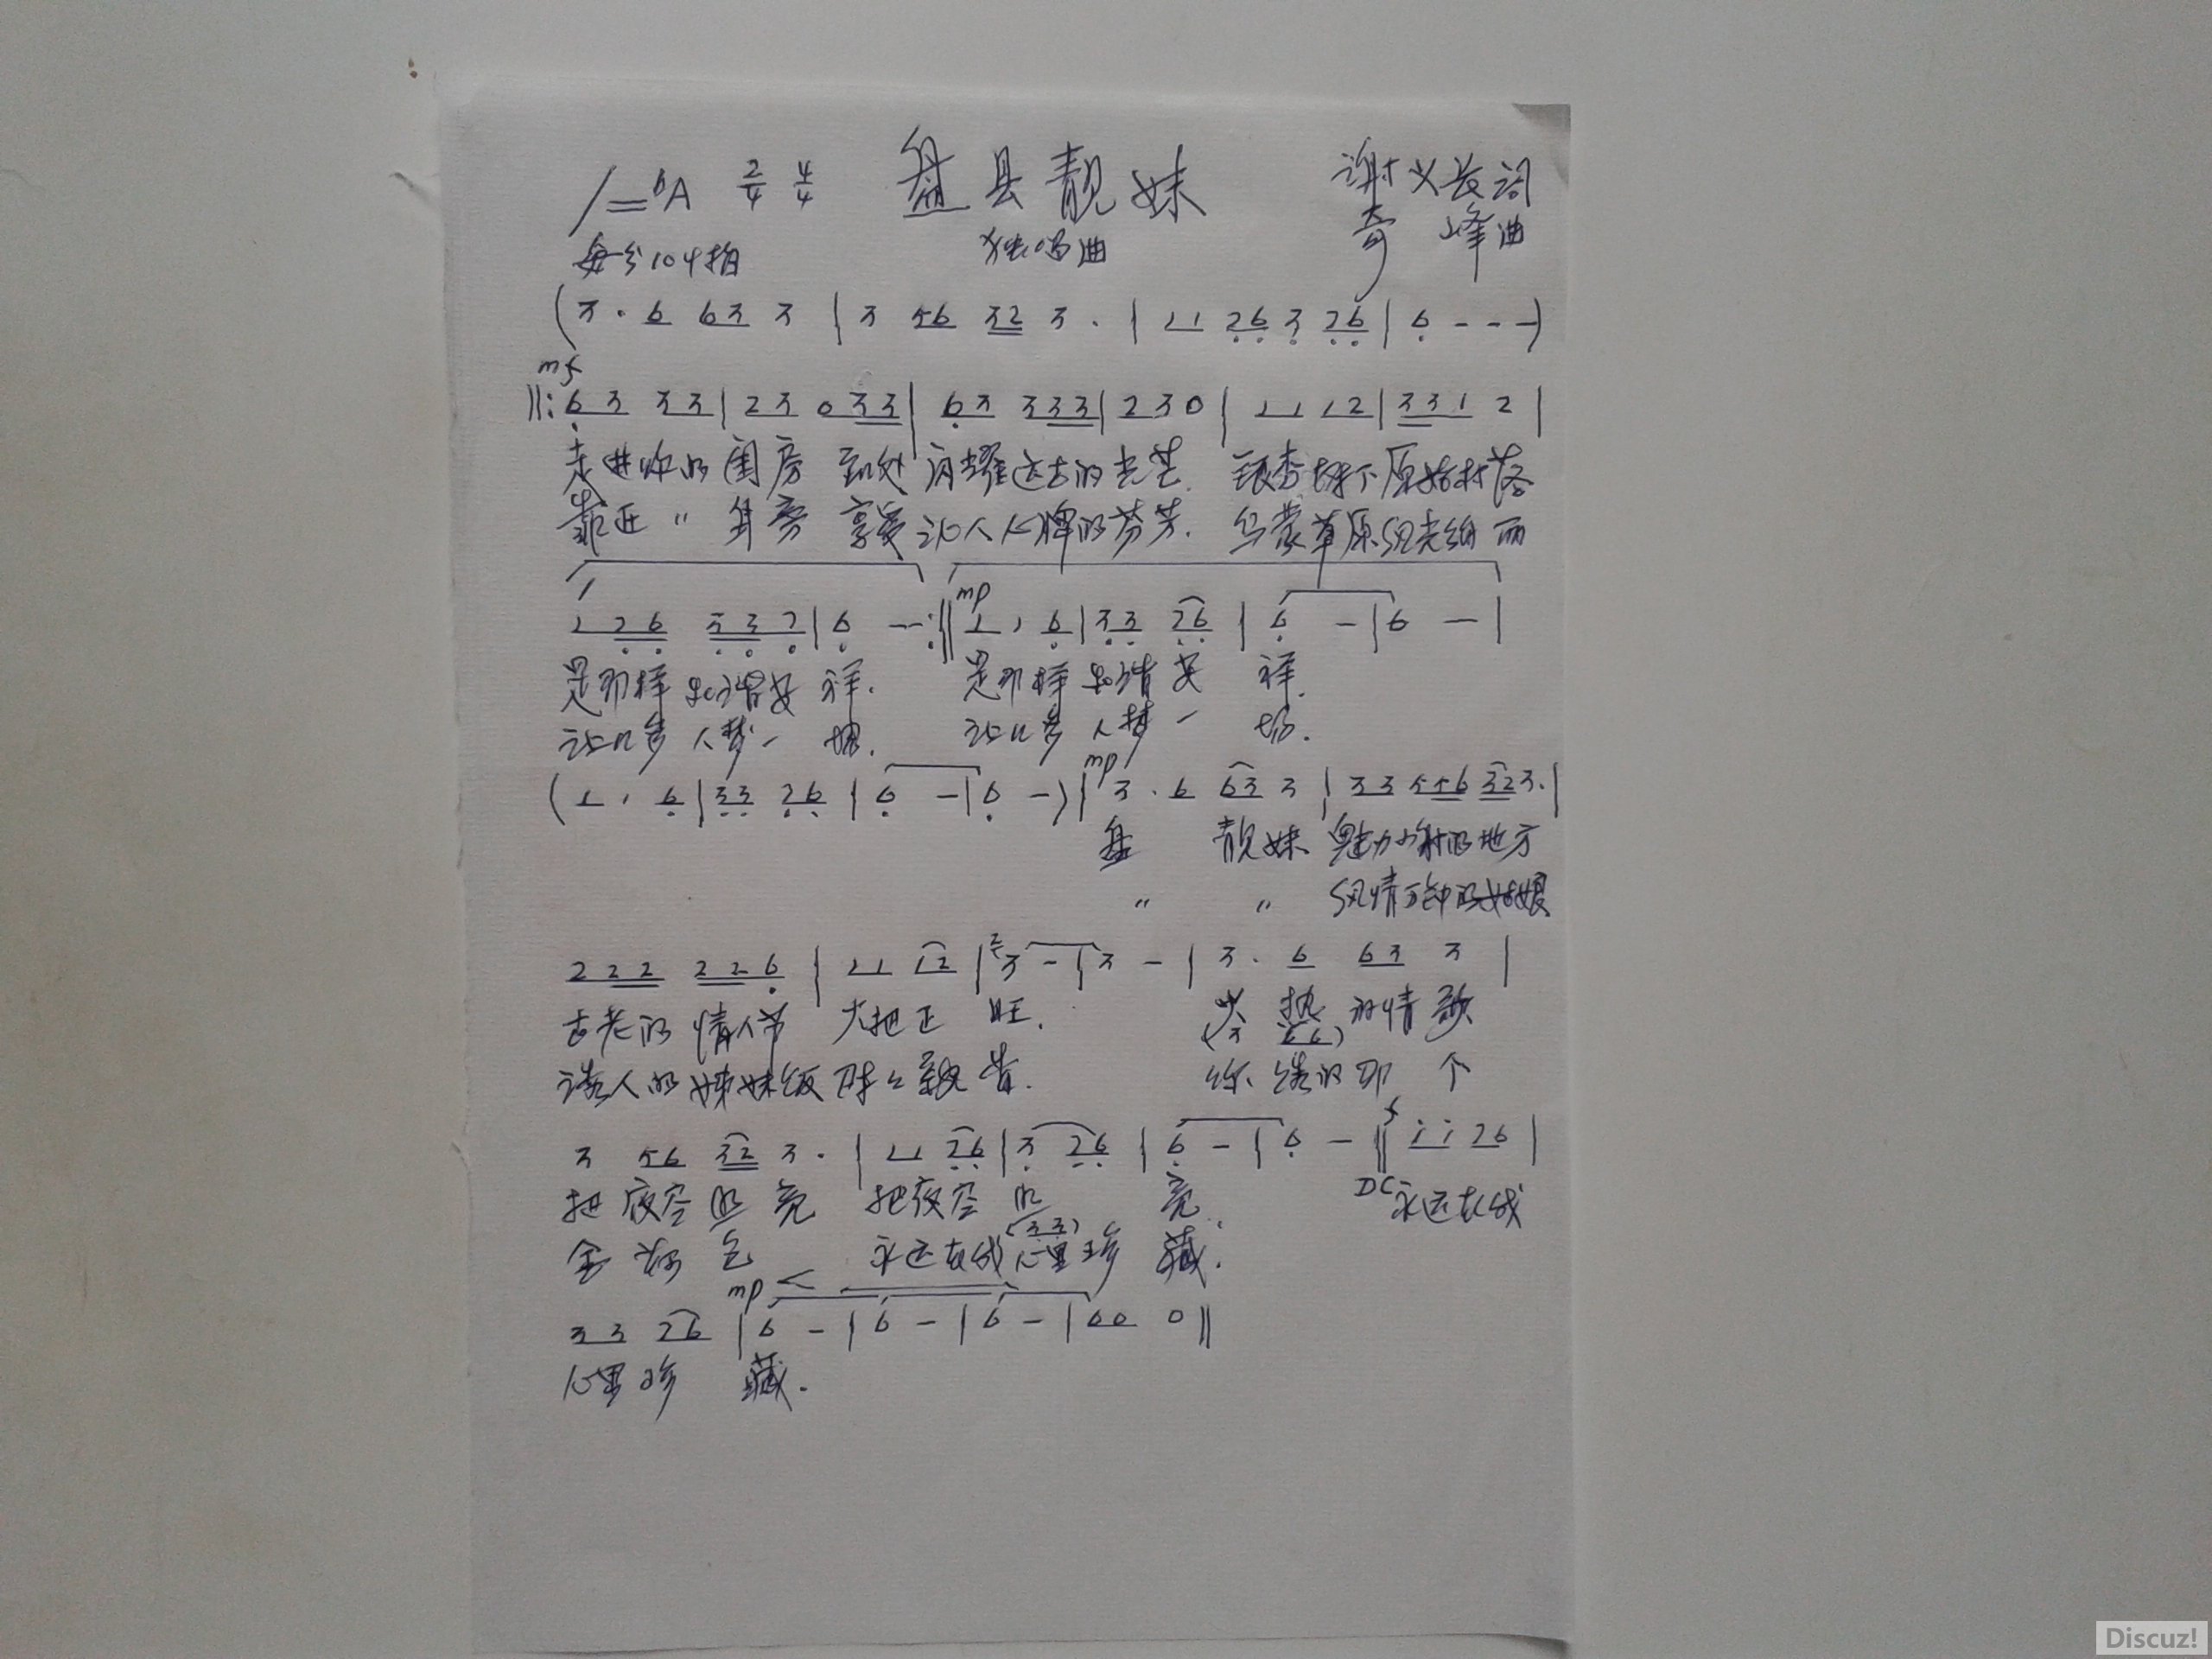 1=bA 2/4 4/4 盘县靓妹 谢义长词
每分104拍 独唱曲 奇峰曲
(3· 6 63 3 | 3 56 32 3· | 11 26 3 26 | 6 - - -)
mf
‖: 63 33 | 23 033 | 63 333 | 230 | 11 12 | 331 2 |
走进你的闺房 到处闪耀远古的光芒. 银杏树下原始村落
靠近 〃 身旁 享受沁人心脾的芬芳. 乌蒙草原风光绚丽
mp
1 26 332 | 6 - :‖ 1· 6 | 33 26 | 6 - | 6 - |
是那样和谐安祥. 是那样和谐安祥.
让几多人梦一场. 让几多人梦一场.
mp
(1· 6 | 33 26 | 6 - | 6 -) | 3· 6 63 3 | 33 556 323· |
盘 靓妹 魅力四射的地方
〃 〃 风情万种的姑娘
222 226 | 11 12 | 3 - | 3 - | 3· 6 63 3 |
古老的情人节 火把正旺. 火热的情歌
(3 66)
诱人的姊妹饭 你 的那个
f
3 56 32 3· | 11 26 | 3 26 | 6 - | 6 - ‖ ii 26 |
把夜空照亮 把夜空照亮. DC 永远在我
(33)
永远在我心里珍藏.
mp <
33 26 | 6 - | 6 - | 6 - | 60 0 ‖
心里珍藏.
Discuz!